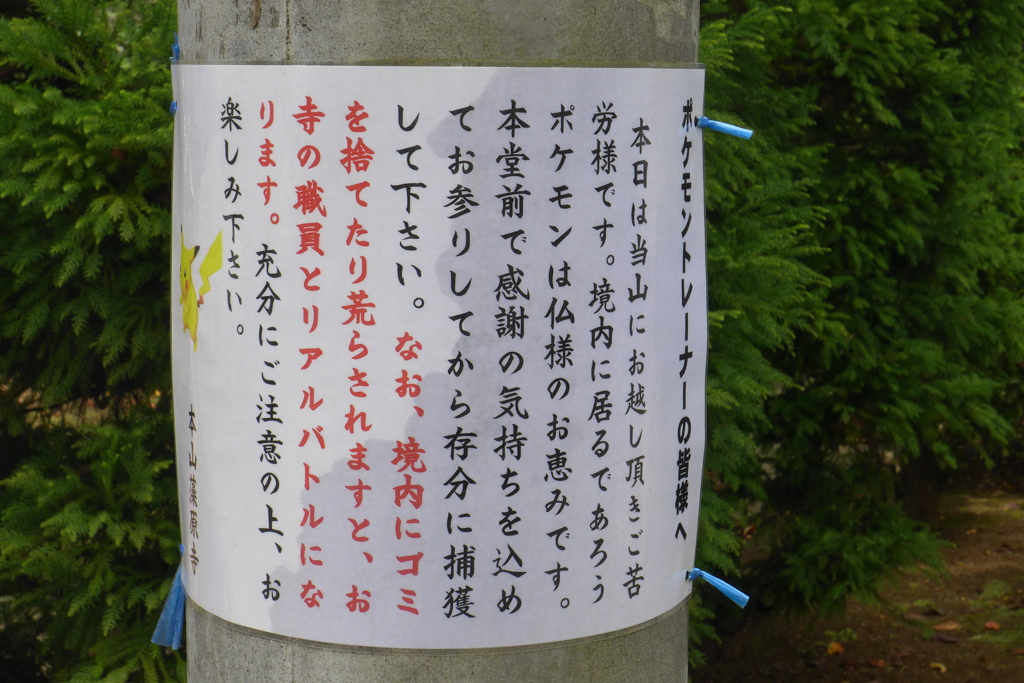 ポケモントレーナーの皆様へ
本日は当山にお越し頂きご苦
労様です。境内に居るであろう
ポケモンは仏様のお恵みです。
本堂前で感謝の気持ちを込め
てお参りしてから存分に捕獲
して下さい。なお、境内にゴミ
を捨てたり荒らされますと、お
寺の職員とリアルバトルにな
ります。充分にご注意の上、お
楽しみ下さい。
本山藻原寺